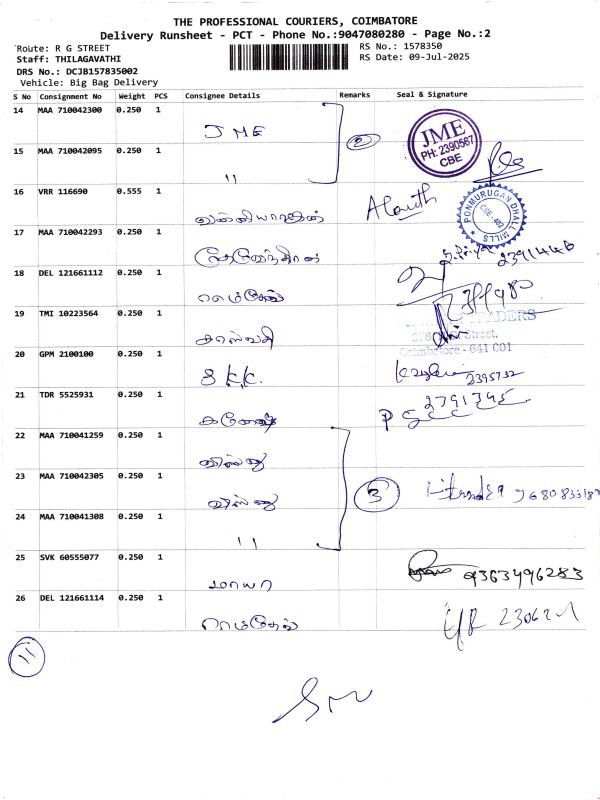 THE PROFESSIONAL COURIERS, COIMBATORE
Delivery Runsheet - PCT - Phone No.:9047080280 - Page No.:2
Route: R G STREET
RS No.: 1578350
Staff: THILAGAVATHI
RS Date: 09-Jul-2025
DRS No.: DCJB157835002
Vehicle: Big Bag Delivery
S No Consignment No Weight PCS Consignee Details Remarks Seal & Signature
14 MAA 710042300 0.250 1 JME 2 JME PH: 2390567 CBE
15 MAA 710042095 0.250 1 11
16 VRR 116690 0.555 1 PONMURUGAN DHALL MILLS CBE-
17 MAA 710042293 0.250 1 2391446
18 DEL 121661112 0.250 1 ராமதேவ்
19 TMI 10223564 0.250 1 Street, Coimbatore - 641 001
20 GPM 2100100 0.250 1 S K.K. 2395732
21 TDR 5525931 0.250 1 கணேஷ்
22 MAA 710041259 0.250 1 விஸ்னு
23 MAA 710042305 0.250 1 விஸ்னு 3
24 MAA 710041308 0.250 1 11
25 SVK 60555077 0.250 1 மாயா 9363496283
26 DEL 121661114 0.250 1 ராமதேவ்
11